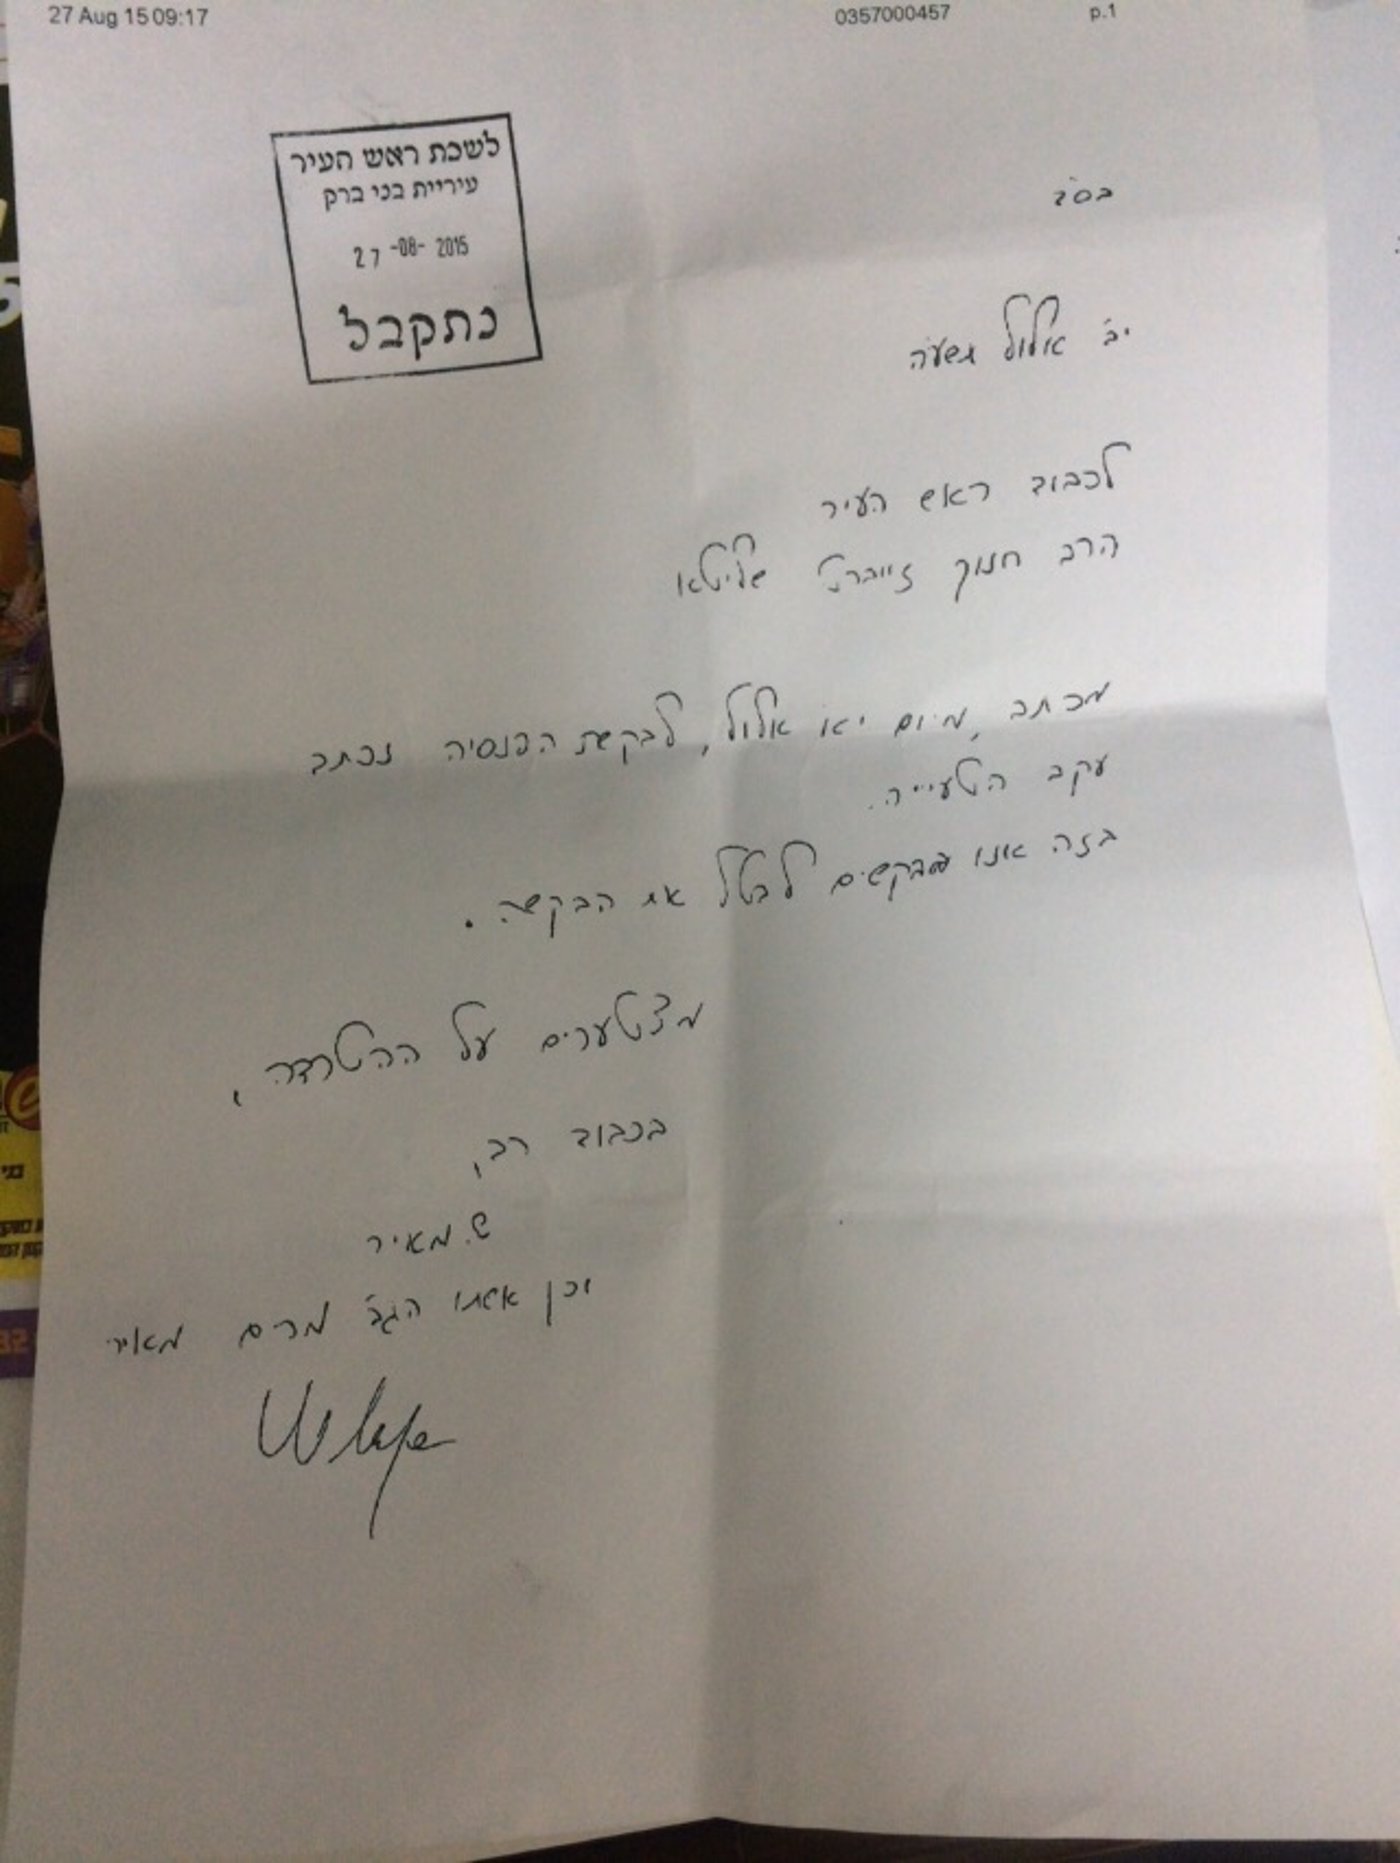 27 Aug 15 09:17 0357000457 p.1
לשכת ראש העיר
עיריית בני ברק
27 -08- 2015
נתקבל
בס"ד
יב' אלול תשע"ה
לכבוד ראש העיר
הרב חנוך זייברט שליטא
מכתב מיום יא' אלול, לבקשת הפנסיה נכתב
עקב הטעייה.
בזה אנו מבקשים לבטל את הבקשה.
מצטערים על ההטרדה,
בכבוד רב,
ש. מאיר
וכן אשתו הגב' מרים מאיר